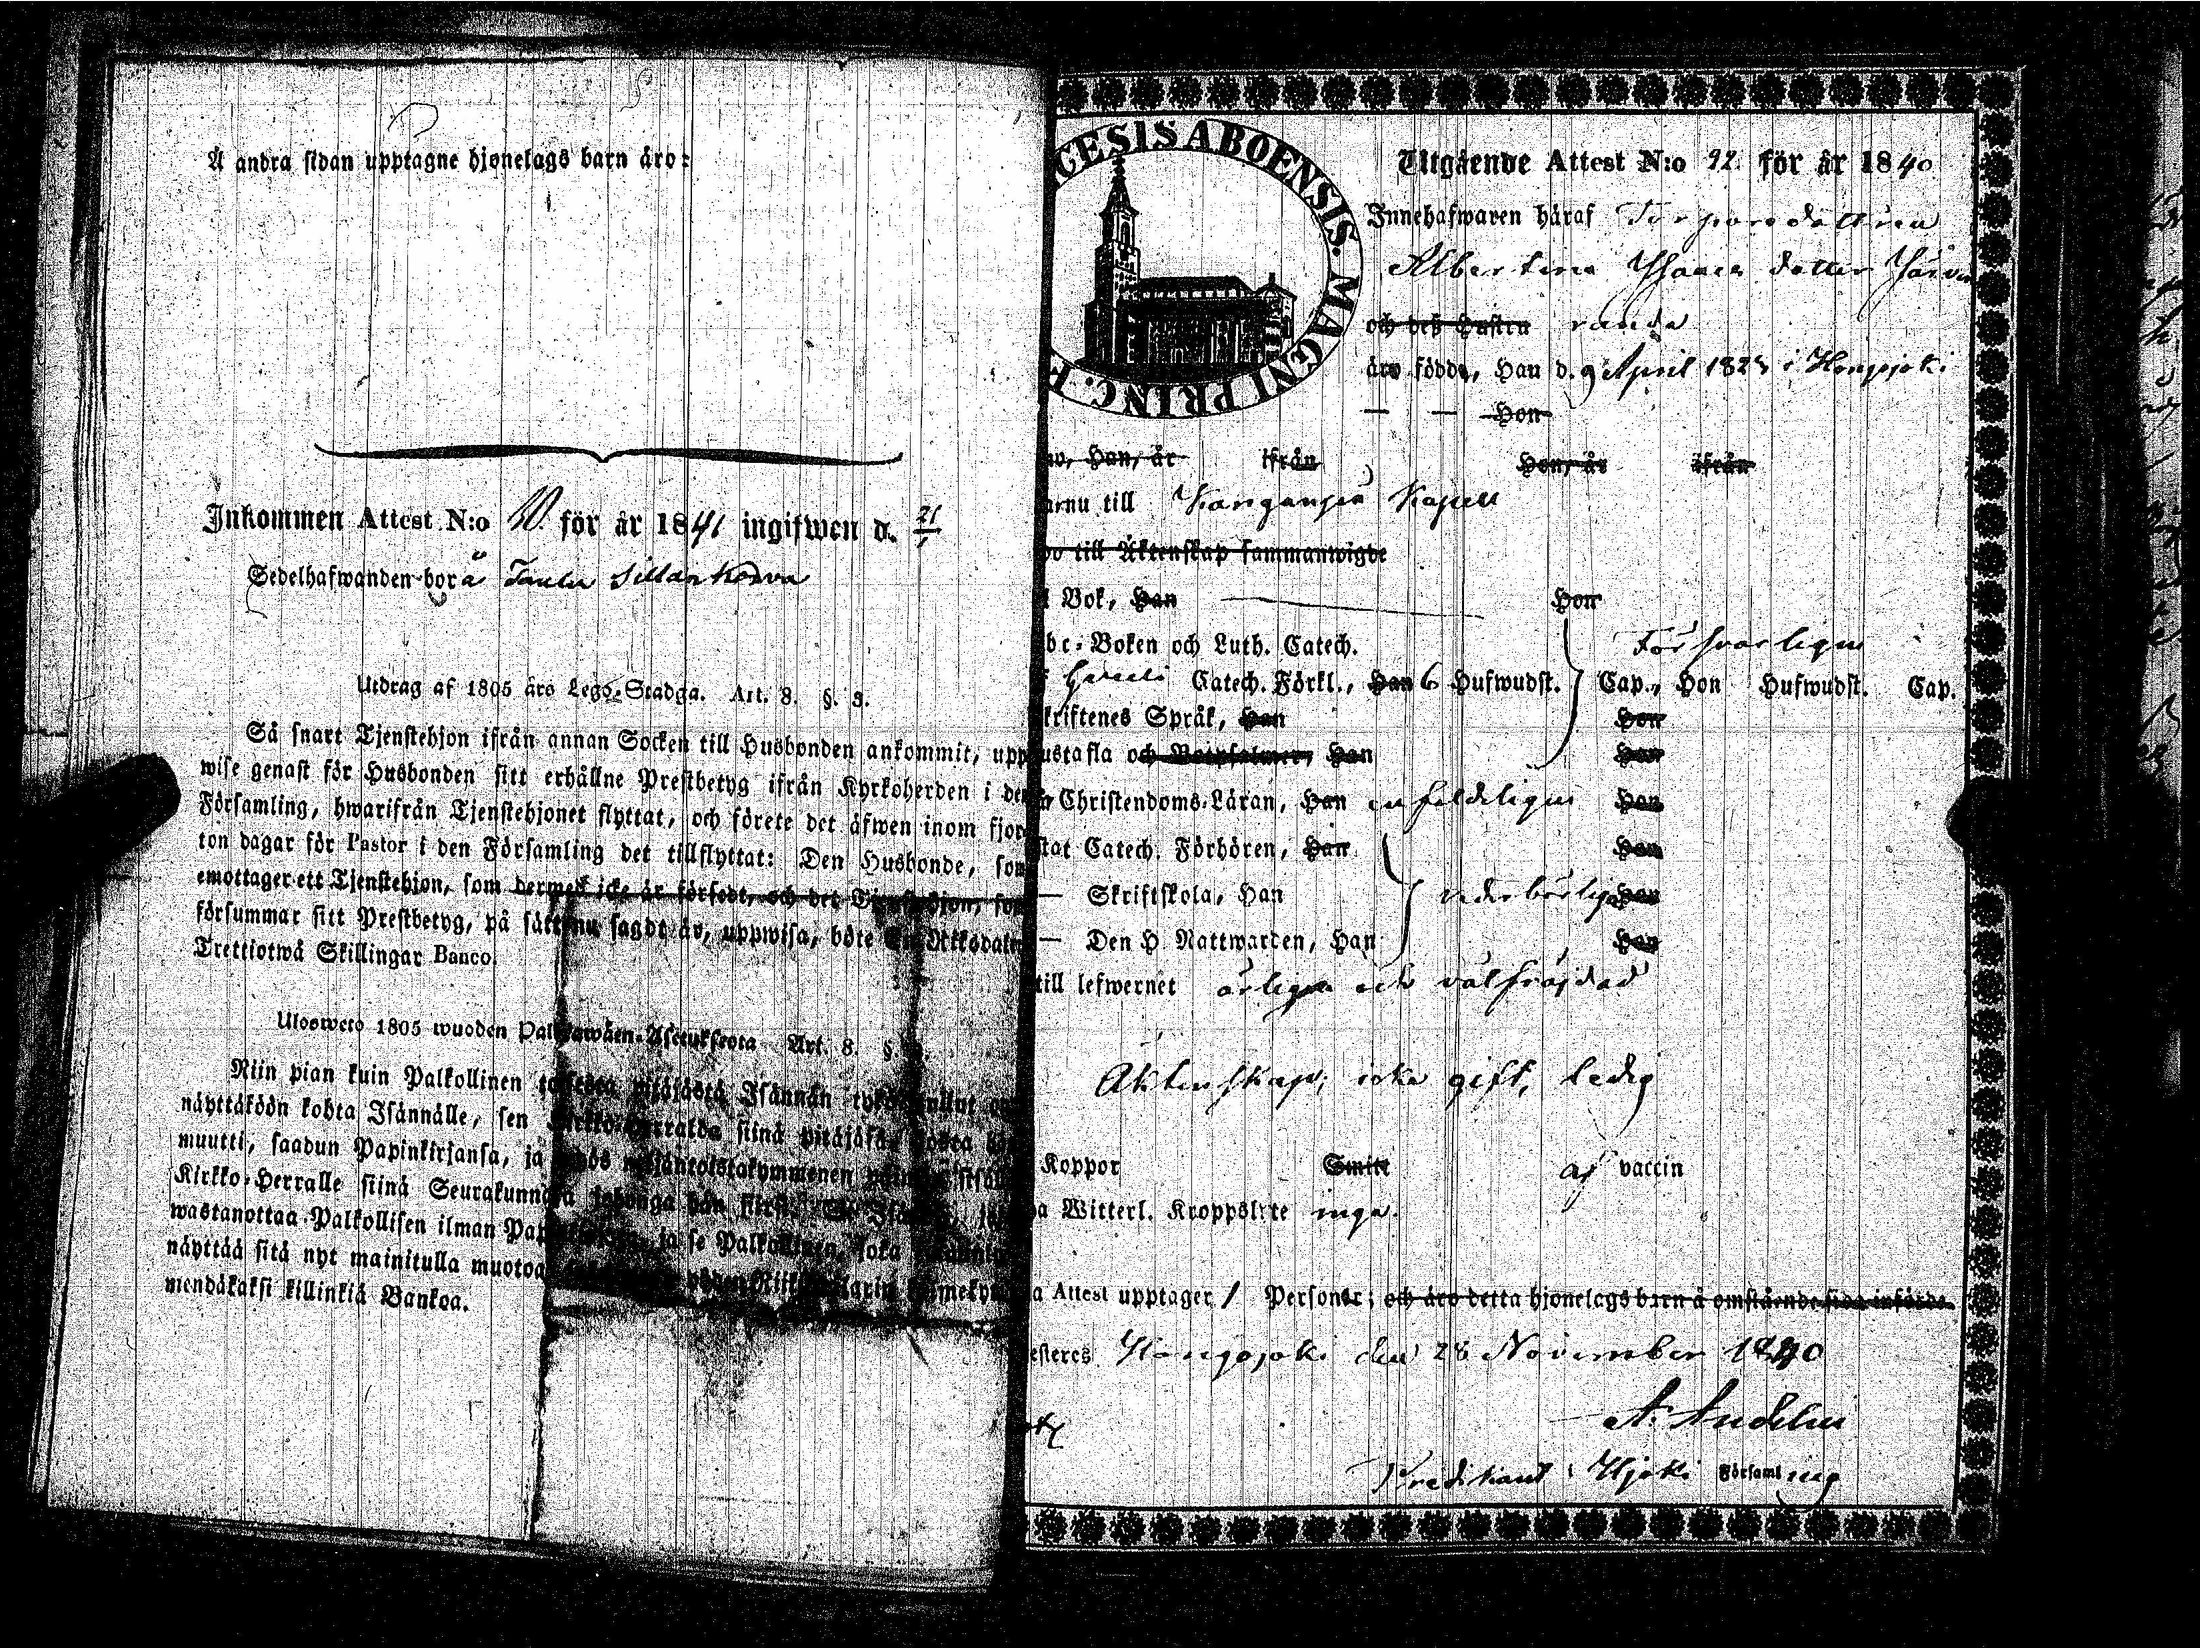 Å andra sidan upptagne hjonelags barn äro:
Inkommen Attest N:o 10 för år 1841 ingifwen d. 21/1
Sedelhafwanden bor å
Utdrag af 1805 års Lego-Stadga. Art. 8. §. 3.
Så snart Tjenstehjon ifrån annan Socken till Husbonden ankommit, upp
wise genast för Husbonden sitt erhållne Prestbetyg ifrån Kyrkoherden i den
Församling, hwarifrån Tjenstehjonet flyttat, och förete det äfwen inom fjor
ton dagar för Pastor i den Församling det tillflyttat: Den Husbonde, som
emottager ett Tjenstehjon, som dermed icke är försedt, och det Tjenstehjon, som
försummar sitt Prestbetyg, på sätt nu sagdt är, uppwisa, böte En Riksdaler
Trettiotwå Skillingar Banco.
Ulosweto 1805 wuoden Palkkawäen-Asetuksesta Art. 8. §.
Niin pian kuin Palkollinen toisesta pitäjästä Isännän tykö tullut on
näyttäköön kohta Isännälle, sen Kirkko-Herralda siinä pitäjäsä, josta hän
muutti, saadun Papinkirjansa, ja myös neljäntoistakymmenen päiwän sisällä
Kirkko-Herralle siinä Seurakunnasa johonga hän siirsi. Se Isändä, joka
wastanottaa Palkollisen ilman Papinkirjata, ja se Palkollinen, joka
näyttää sitä nyt mainitulla muotoa
mendäkaksi killinkiä Bankoa.
CESIS ABOENSIS. MAGNI PRINC. F
Utgående Attest N:o 92 för år 1840
Innehafwaren häraf Torparedottren
Albertina Isaacs dotter
och deß Hustru
äro födde, Han d. 9 April 1823 i Hongojoki
— — Hon
no, Han, år ifrån Hon, år ifrån
arnu till Kanganpä Kapell
wo till Äktenskap sammanwigde
i Bok, Han Hon
bc-Boken och Luth. Catech. Försvarligen
Catech. Förkl., Han 6 Hufwudst. Cap., Hon Hufwudst. Cap.
kriftenes Språk, Han Hon
ustafla och Botpsalmer, Han Hon
Christendoms-Läran, Han enfaldeligen Hon
stat Catech. Förhören, Han Hon
— Skriftskola, Han vederbörligen Hon
— Den H. Nattwarden, Han Hon
till lefwernet ärligen och välfräjdad
Äktenskap; icke gift, ledig
Koppor Smitt af vaccin
a Witterl. Kroppslyte inga.
a Attest upptager 1 Personer; och äro detta hjonelags barn å omstående sida införde.
esteres Hongojoki den 28 November 1840
A. Andelin
Predikant i Hjoki Församling